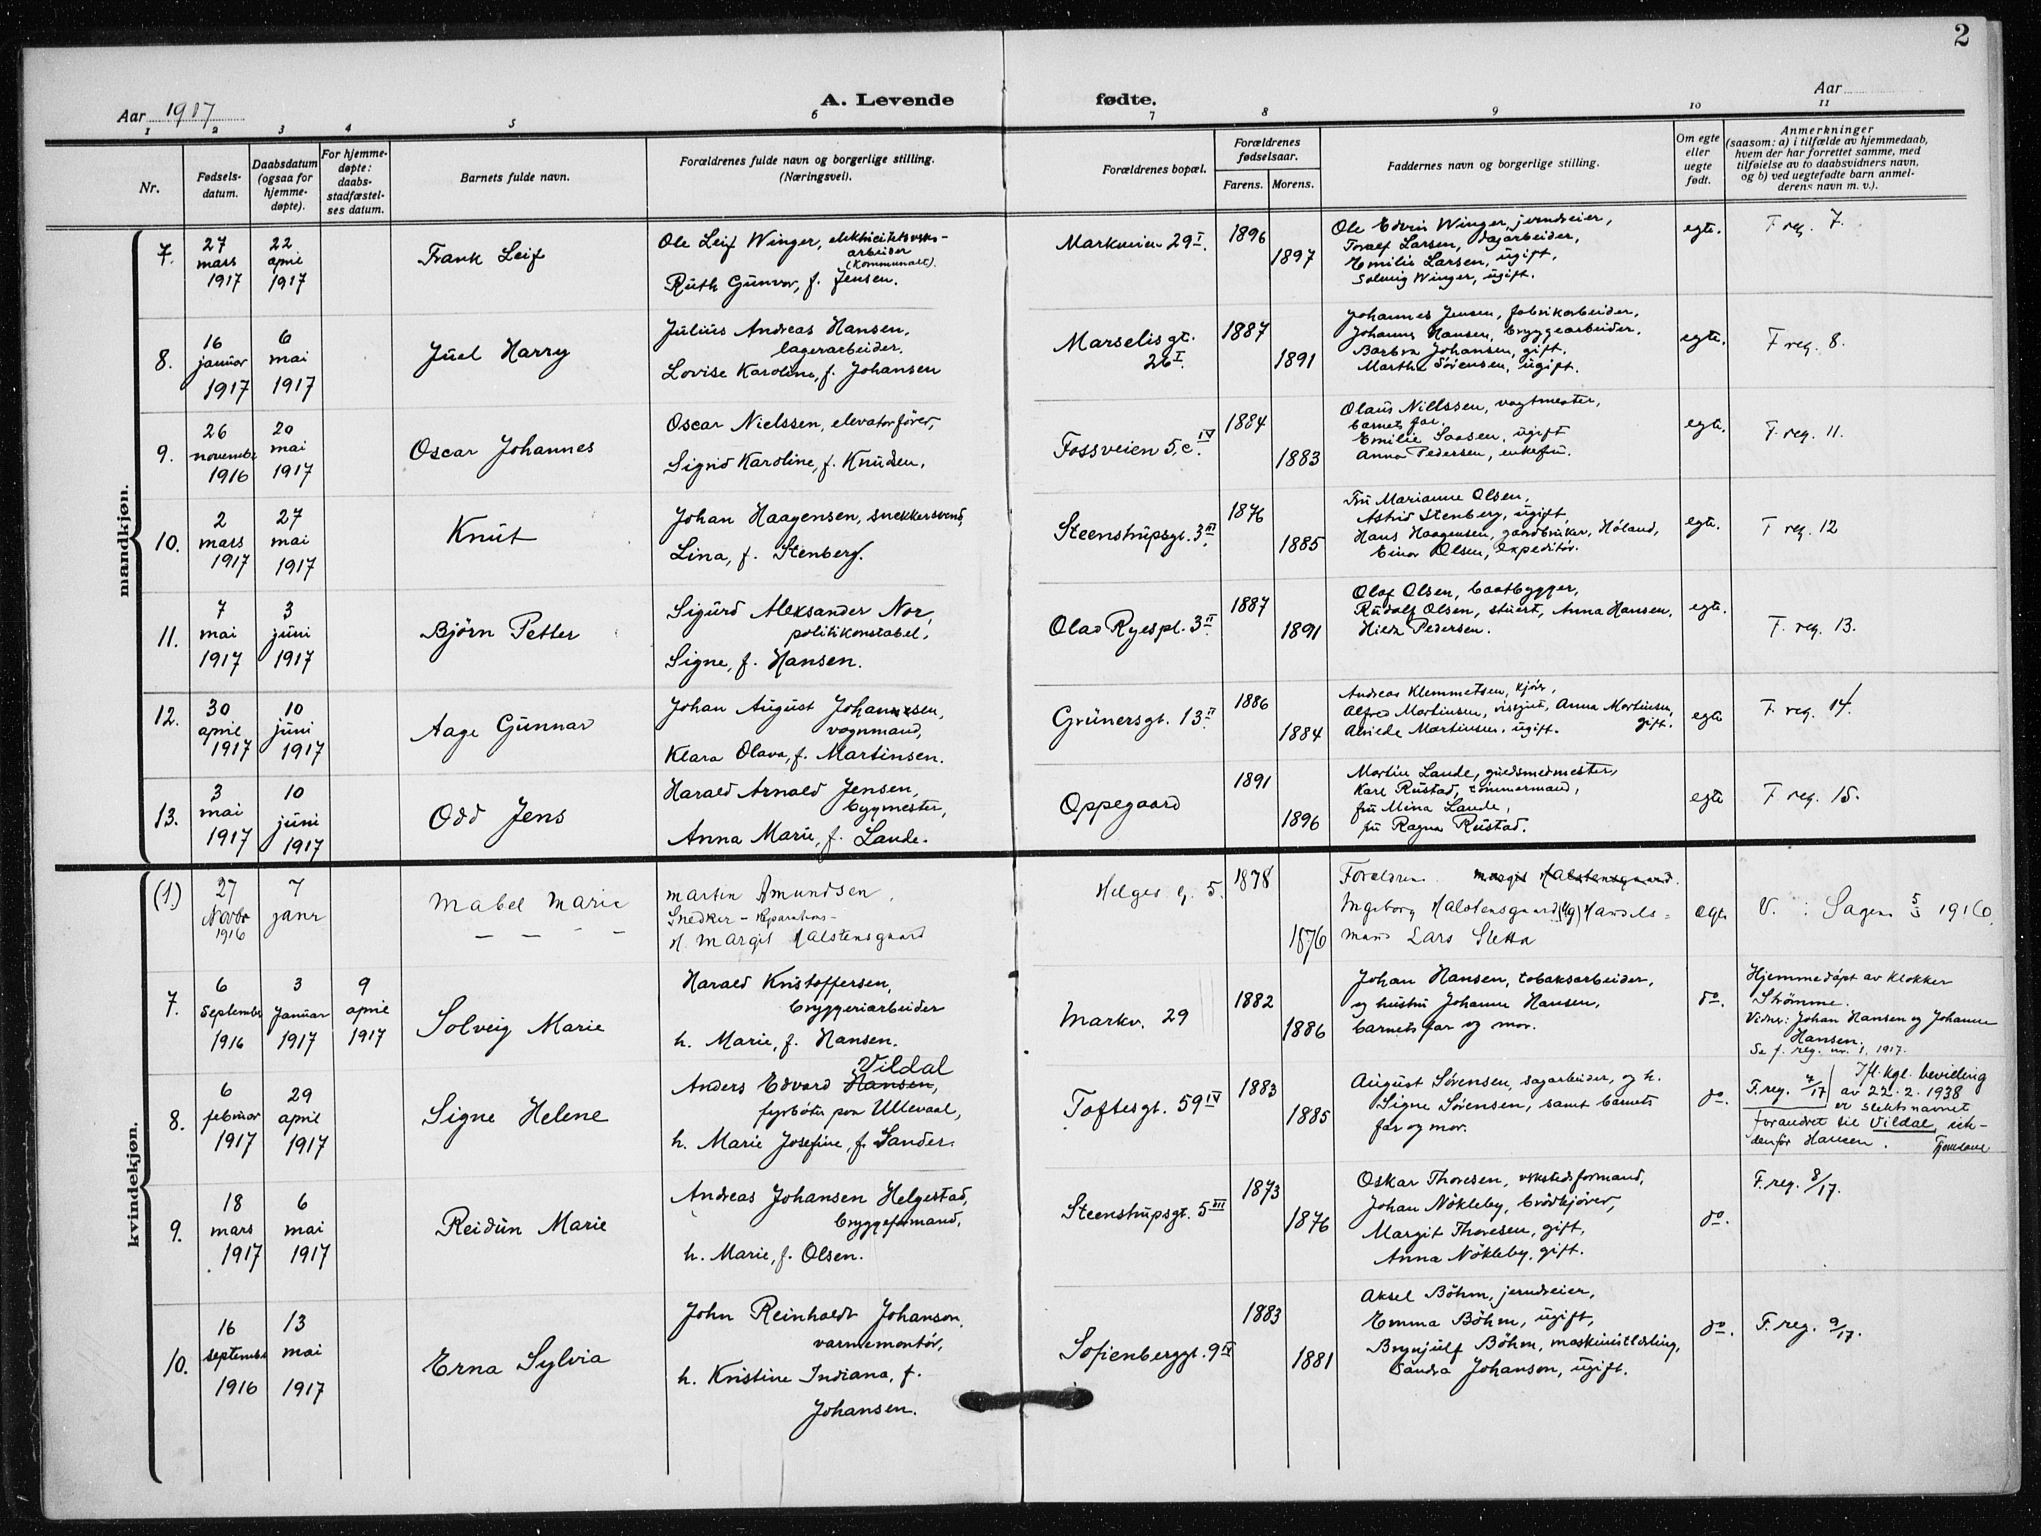 2
Aar 1917
A. Levende
fødte.
Aar
1
2
3
4
5
6
7
8
9
10
11
Nr.
Fødsels-
datum.
Daabsdatum
(ogsaa for
hjemme-
døpte).
For hjemme-
døpte:
daabs-
stadfæstel-
ses datum.
Barnets fulde navn.
Forældrenes fulde navn og borgerlige stilling.
(Næringsvei).
Forældrenes bopæl.
Forældrenes
fødselsaar.
Farens.
Morens.
Faddernes navn og borgerlige stilling.
Om egte
eller
uegte
født.
Anmerkninger
(saasom: a) i tilfælde av hjemmedaab,
hvem der har forrettet samme, med
tilføielse av to daabsvidners navn,
og b) ved uegtefødte barn anmel-
derens navn m. v.).
mandkjøn.
7.
27
mars
1917
22
april
1917
Frank Leif
Ole Leif Winger, elektricitetsverks-
arbeider
(kommunalt).
Ruth Gunvor, f. Jensen.
Markveien 29 I.
1896
1897
Ole Edvin Winger, jerndreier,
Toralf Larsen, dagarbeider,
Emilie Larsen, ugift,
Solveig Winger, ugift.
egte.
F. reg. 7.
8.
16
januar
1917
6
mai
1917
Juel Harry
Julius Andreas Hansen,
lagerarbeider.
Lovise Karoline, f. Johansen
Marselisgt.
26 I.
1887
1891
Johannes Jensen, fabrikarbeider,
Johannes Hansen, bryggearbeider,
Barbra Johansen, gift.
Martha Sörensen, ugift.
egte.
F reg. 8.
9.
26
november
1916
20
mai
1917
Oscar Johannes
Oscar Nielssen, elevatorfører,
Sigrid Karoline, f. Knudsen,
Fossveien 5,c. IV
1884
1883
Olaus Nielssen, vagtmester,
barnets far,
Emilie Saasen, ugift
Anna Pedersen, enkefru.
egte.
F. reg. 11.
10.
2
mars
1917
27
mai
1917
Knut
Johan Haagensen, snekkersvend,
Lina, f. Stenberg.
Steenstrupsgt. 3 III
1876
1885
Fru Marianne Olsen,
Astrid Stenberg, ugift,
Hans Haagensen, gaardbruker, Høland,
Einar Olsen, Expeditör.
egte.
F reg. 12
11.
7
mai
1917
3
juni
1917
Björn Petter
Sigurd Aleksander Nor,
politikonstabel,
Signe, f. Hansen.
Olaf Ryespl. 3 II
1887
1891
Olaf Olsen, baatbygger,
Rudolf Olsen, stuert, Anna Hansen,
Hilda Pedersen.
egte.
F. reg. 13.
12.
30
april
1917
10
juni
1917
Aage Gunnar
Johan August Johannesen,
vognmand,
Klara Olava, f. Martinsen.
Grünersgt. 13 II
1886
1884
Andreas Klemmetsen, kjörer,
Alfred Martinsen, visergut, Anna Martinsen,
gift.
Alvilde Martinsen, ugift.
egte
F. reg. 14.
13.
3
mai
1917
10
juni
1917
Odd Jens
Harald Arnold Jensen,
bygmester,
Anna Marie, f. Lande.
Oppegaard
1891
1896
Martin Lande, guldsmedmester,
Karl Rustad, tömmermand,
fru Mina Lande,
fru Ragna Rustad.
egte
F reg. 15.
kvindekjøn.
(1.)
27
Novbr
1916
7
janr
Mabel Marie
Martin Amundsen
Snedker - Reparations-
H. Margit Halstensgaard
Helges g. 5.
1878
1876
Foreldrene. Margit Halstensgaard.
Ingeborg Halstensgaard (Ug) Handels=
mand Lars Sletta
egte
V. : Sagene 1916.
7.
6
September
1916
3
Januar
1917
9
april
1917
Solveig Marie
Harald Kristoffersen,
bryggeriarbeider
h. Marie, f. Hansen.
Markv. 29
1882
1886
Johan Hansen, tobaksarbeider,
og hustru Johanne Hansen,
barnets far og mor.
do.
Hjemmedöpt av Klokker
Strömme.
Vidner: Johan Hansen og Johanne
Hansen.
Se f. reg. nr. 1, 1917.
8.
6
februar
1917
29
april
1917
Signe Helene
Vildal
Anders Edvard Hansen,
fyrböter paa Ullevaal,
h. Marie Josefine, f. Sander.
Toftesgt. 59 IV
1883
1885
August Sörensen, sagarbeider, og h.
Signe Sörensen, samt barnets
far og mor.
do.
F. reg. 7/17
Ifl. kgl. bevilling
av 22.2.1938
er slektsnavnet
forandret til Vildal, iste-
denfor Hansen.
9.
18
mars
1917
6
mai
1917
Reidun Marie
Andreas Johansen Helgestad,
bryggeformand,
h. Marie, f. Olsen.
Steenstrupsgt. 5 III
1873
1876
Oskar Thoresen, verkstedsformand,
Johan Nökleby, brödkjörer,
Margit Thoresen, gift,
Anna Nökleby, gift.
do.
F. reg. 8/17.
10.
16
september
1916
13
mai
1917
Erna Sylvia
John Reinholdt Johanson,
varmemontör,
h. Kristine Indiana, f.
Johansen.
Sofienberggt. 9 IV
1883
1881
Aksel Böhm, jerndreier,
Emma Böhm, ugift,
Brynjulf Böhm, maskinistlærling,
Sandra Johanson, ugift.
do.
F. reg. 9/17.